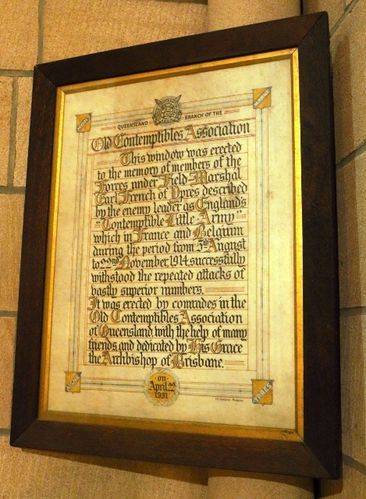 QUEENSLAND BRANCH OF THE
Old Contemptibles Association
This window was erected
to the memory of members of the
Forces under Field-Marshal
Earl French of Ypres described
by the enemy leader as England's
"Contemptible Little Army"
which in France and Belgium
during the period from 5th August
to 22nd November, 1914 successfully
withstood the repeated attacks of
vastly superior numbers.
It was erected by comrades in the
Old Contemptibles Association
of Queensland, with the help of many
friends and dedicated by His Grace
the Archbishop of Brisbane.
on
April
1931
YPRES